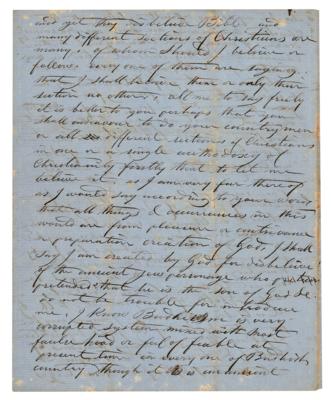 and yet they believe Bible and
many different sections of Christians are
many, of whom should I believe or
follow. Every one of them are saying
that I shall believe them or only their
section no others, all me to say firstly
it is better to you perhaps that you
shall endeavour to do your countrymen
or all different sections of Christians
in one or a single orthodoxy of
Christianity firstly that to let me
believe it. as I am very far thereof
as I want say according to your word
that all things & occurrences in this
world are from pleasure or contrivance
or preparation creation of God, I shall
say I am created by God for disbeliever
of the ancient Jew personage who
pretended that he is the son of God do
not be trouble for introduce
me, I know Buddhism is very
corrupted system mixed with most
false hood or full of fable at
present time in every one of Budhist
country though it is an ancient